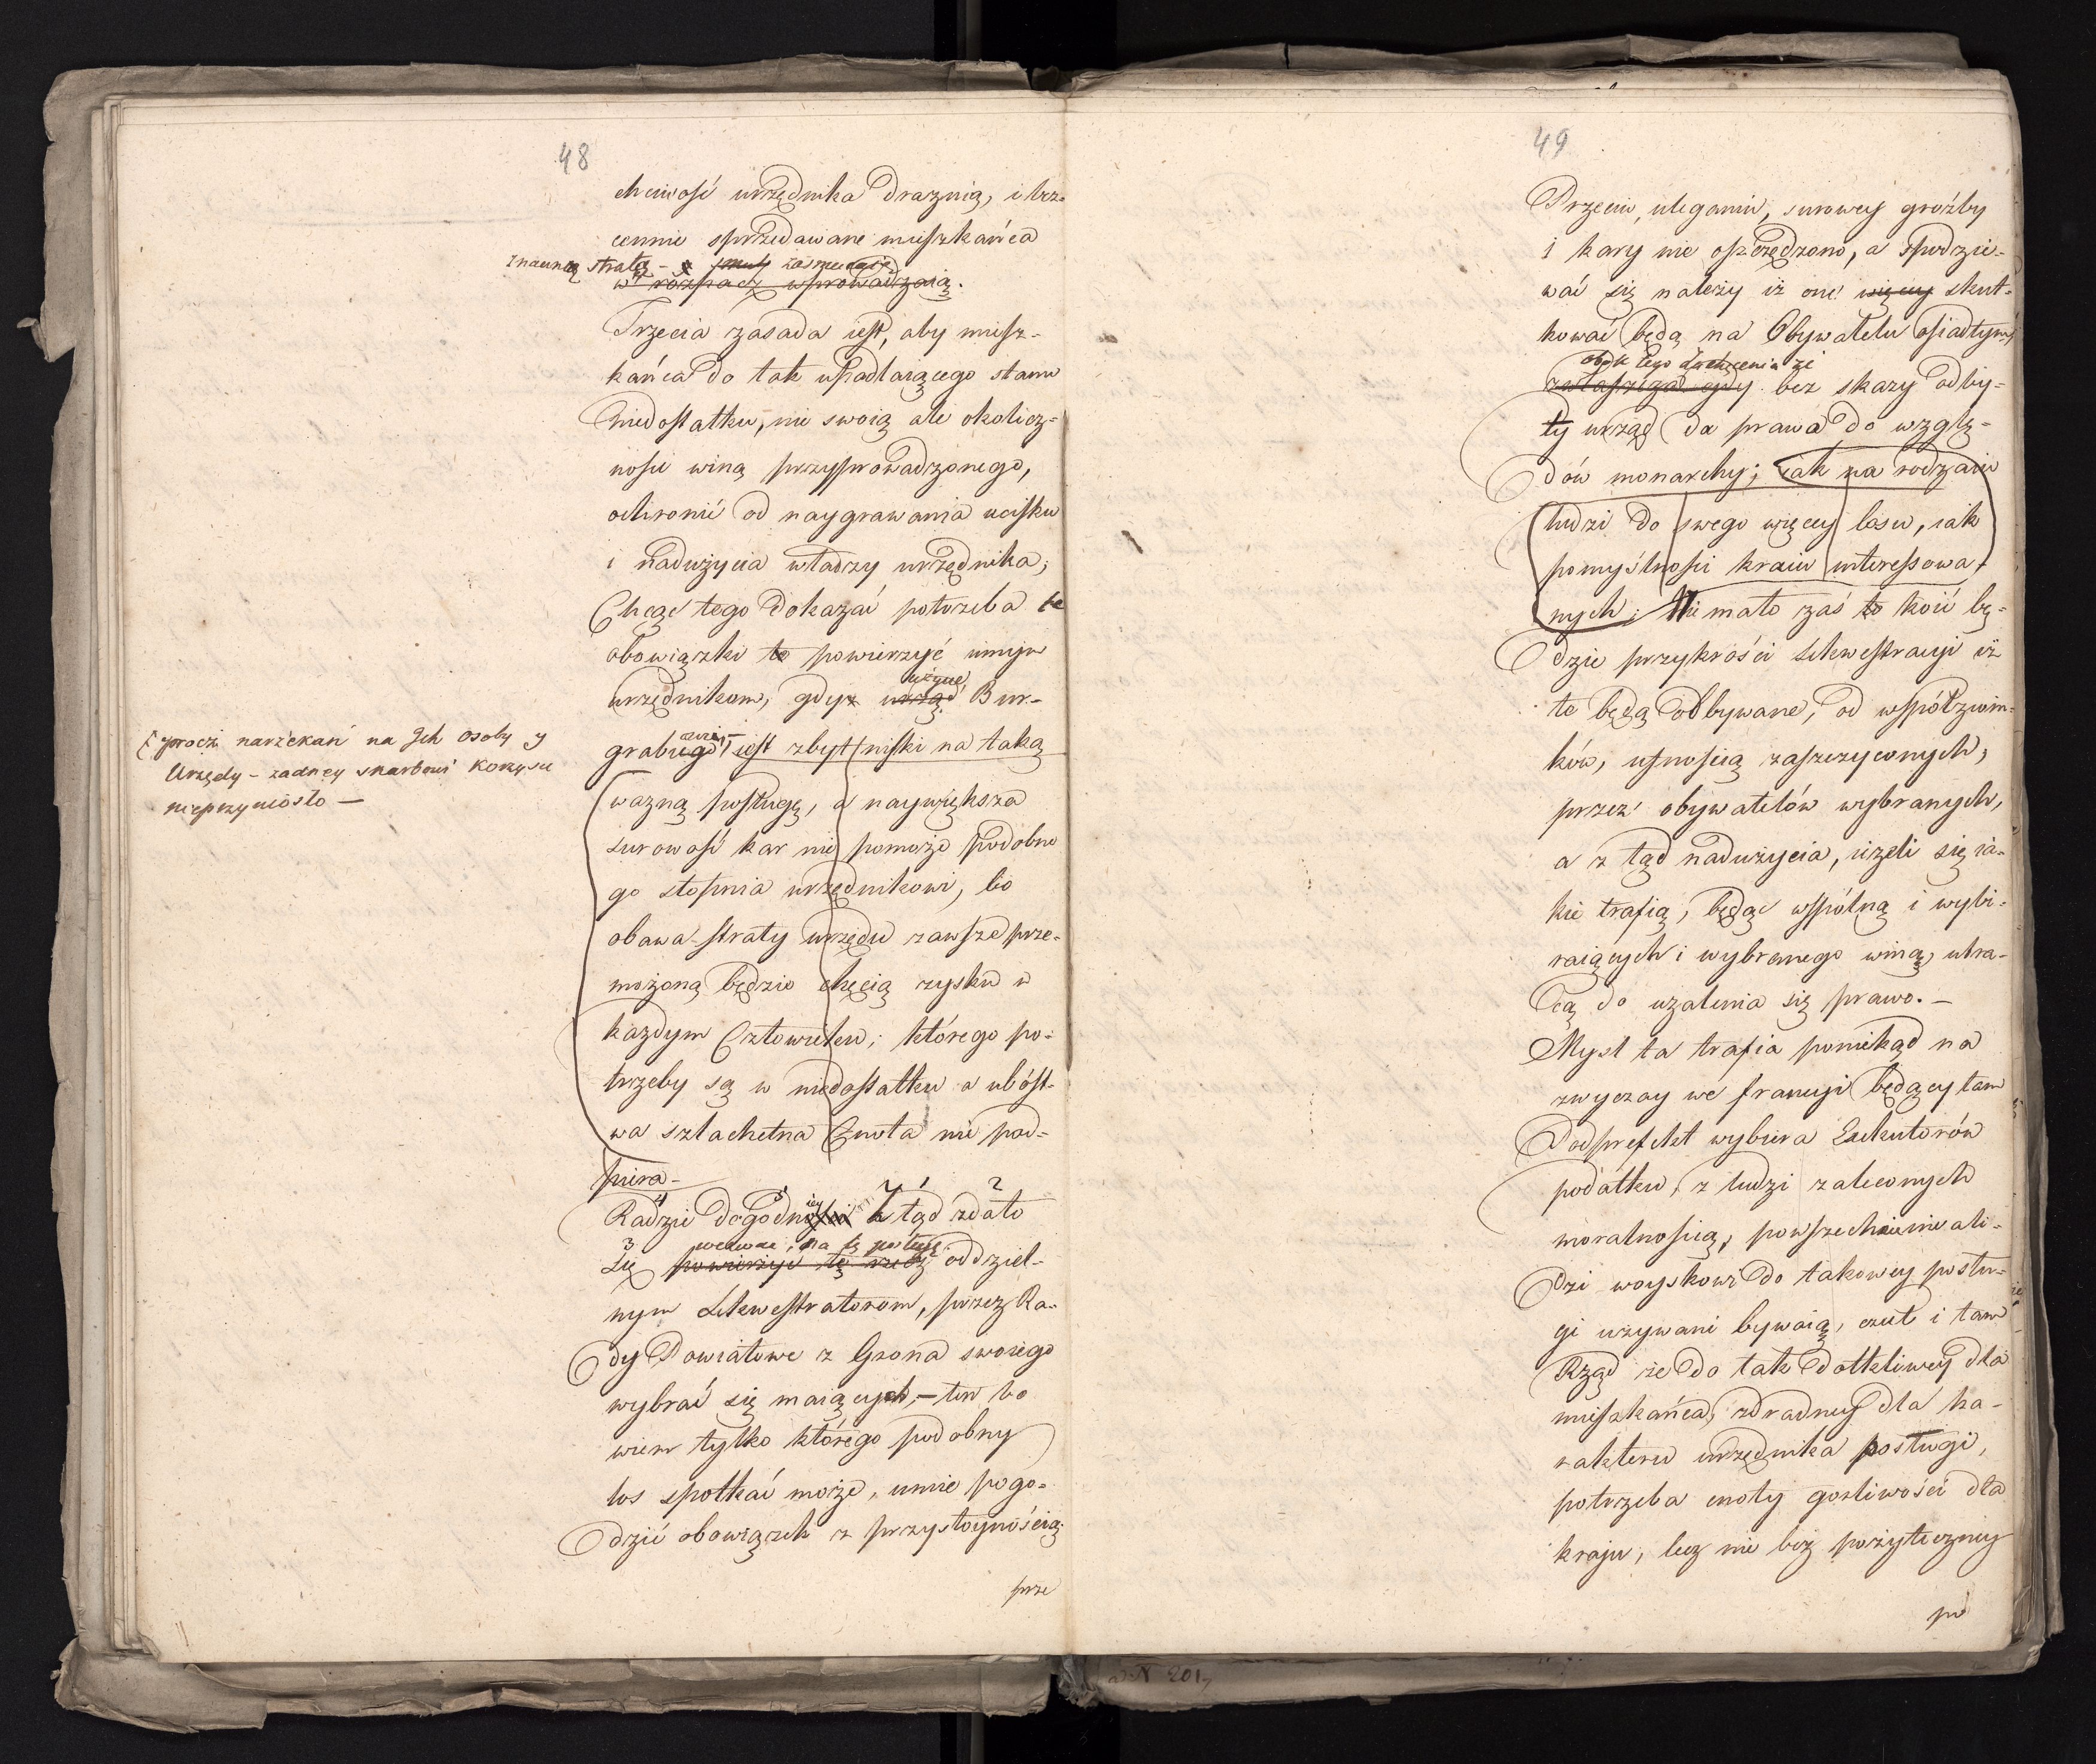 48
chciwość urzędnika draznią, i bez-
cennie sprzedawane mieszkańca
znaczną stratę - zasmucają
w rozpacz wprowadzaią.
Trzecia zasada iest, aby miesz-
kańca do tak upadlaiącego stanu
niedostatku, nie swoią ale okolicz-
nosci winą przyprowadzonego,
ochronić od naygrawania ucisku
i nadużycia władzy urzędnika;
Chcąc tego dokazać potrzeba te
obowiązki te powierzyć innym
urzędnikom, gdyz urząd Bur-
użycie
grabiego iest zbyt niski na taką
(prócz narzekań na Ich osoby y
Urzędy - zadney skarbowi korzysci
nieprzyniosło -
wazną posługę, a naywiększa
surowość kar nie pomoże podobne
go stopnia urzędnikowi, bo
obawa straty urzędu zawsze prze-
możoną będzie chęcią zysku w
kazdym Człowieku; którego po-
trzeby są w niedostatku a ubóst-
wa szlachetna Cnota nie pod-
piera -
4 1 2
Radzie dogodniey Z tąd zdało
3 wezwać, na tę posługę
się powierzyć tę rzecz oddziel-
nym Sekwestratorom, przez Ra-
dy Powiatowe z Grona swoiego
wybrać się maiących, - ten bo
wiem tylko którego podobny
los spotkać może, umie pogo-
dzić obowiązek z przystoynością.
prze
49
Przeciw uleganiu, surowey groźby
i kary nie oszczędzono, a spodzie-
wać się należy iż one więcey skut-
kować będą na Obywatelu osiadłym,
obok tego zachęcenia że
zwłaszcza gdy bez skazy odby-
ty urząd da prawa do wzglę-
dów monarchy; iak na rodzaiu
ludzi do swego więcey losu, iak
pomyślności kraiu interessowa-
nych; Nie mało zaś to koić bę-
dzie przykrości Sekwestracyi iż
te będą odbywane, od współziom-
ków, ufnością zaszczyconych,
przez obywatelów wybranych,
a z tąd nadużycia, ieżeli się ia-
kie trafią, będąc wspólną i wybi-
raiących i wybranego winą, utra-
cą do użalenia się prawo. -
Mysl ta trafia poniekąd na
zwyczay we francyi będący tam
Podprefekt wybiera Exekutorów
podatku, z ludzi zaleconych
moralnością, powszechnie inwali-
dzi woyskowi do takowey posłu-
gi używani bywaią, czuł i tam
Rząd że do tak dotkliwey dla
mieszkańca, zdradney dla ka-
rakteru urzędnika posługi,
potrzeba cnoty gorliwości dla
kraju, lecz nie bez pożyteczney
po
ad N 201,